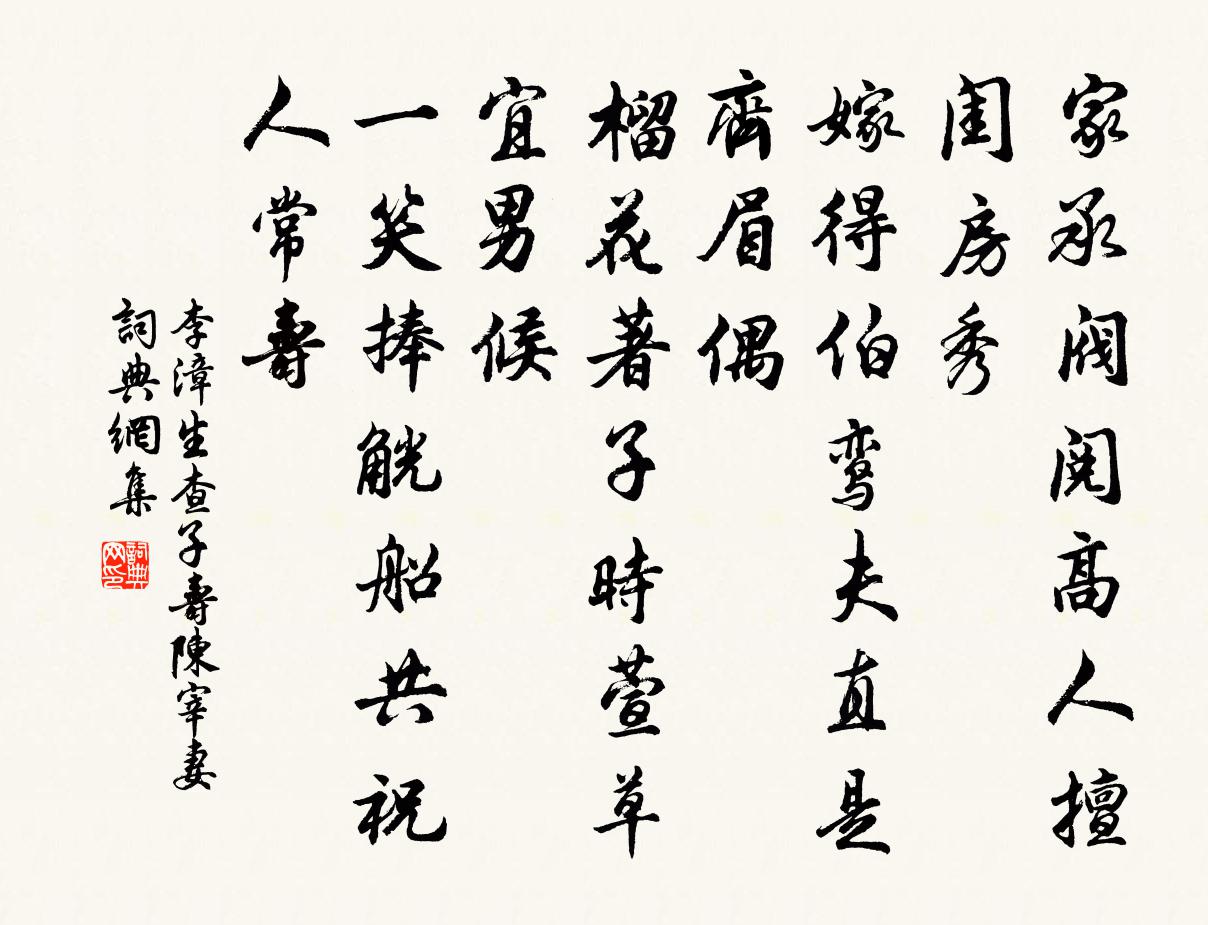 家承阀阅高人擅
闺房秀
嫁得伯鸾夫直是
齊眉偶
榴花著子時萱草
宜男候
一笑捧觥船共祝
人常壽
李漳生查子壽陳宰妻
詞典網集
詞典网印